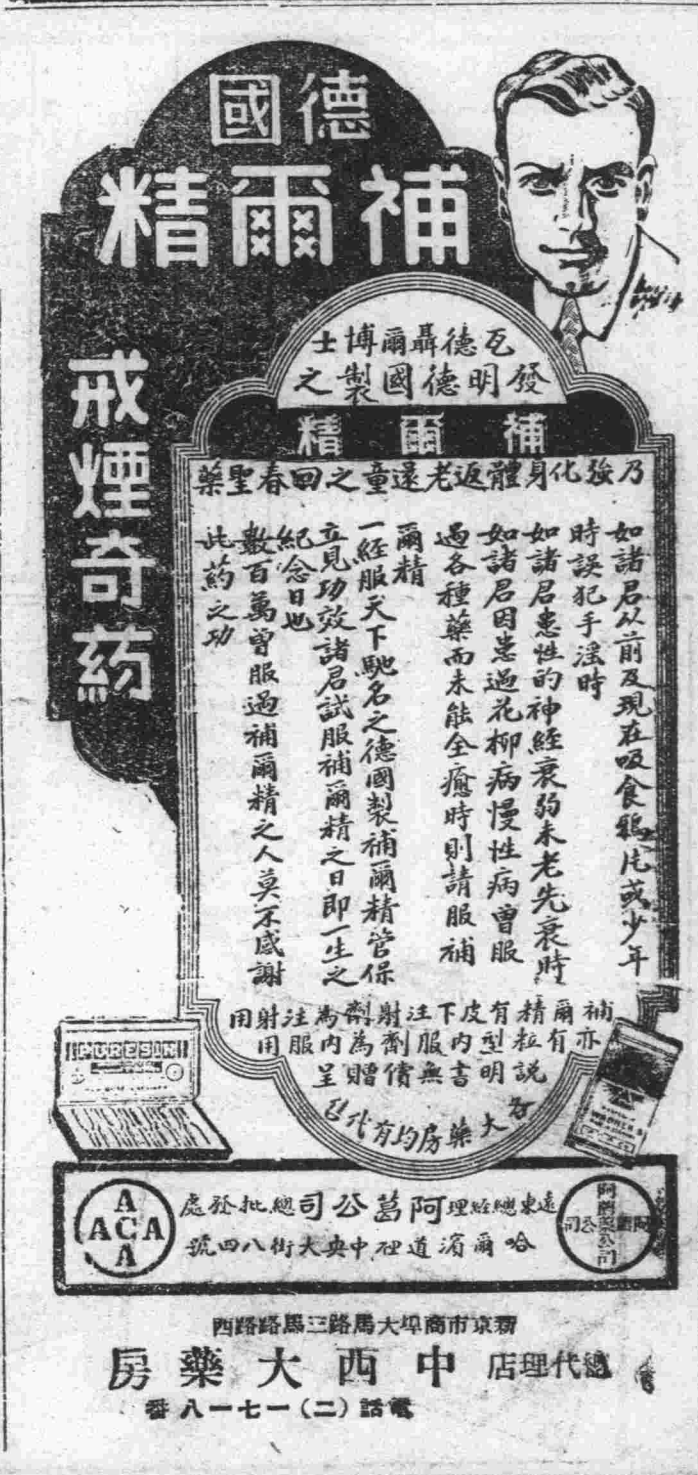 德國
補爾精
戒煙奇葯
瓦德聶爾博士
發明德國製之
補爾精
乃強化身體返老還童之回春聖藥
如諸君以前及現在吸食鴉片或少年
時誤犯手淫時
如諸君患性的神經衰弱未老先衰時
如諸君因患過花柳病慢性病曾服
過各種藥而未能全癒時則請服補
爾精
一經服天下馳名之德國製補爾精管保
立見功效諸君試服補爾精之日即一生之
紀念日也
數百萬曾服過補爾精之人莫不感謝
此葯之功
補爾精有皮下注射劑為注射用
亦有粒型內服劑為內服用
說明書無價贈呈
各大藥房均有代售
PURESIN
遠東總經理阿葛公司總批發處
哈爾濱道裡中央大街八四號
A
A C A
A
新京市商埠大馬路三馬路路西
總代理店 中西大藥房
電話（二）一七一八番